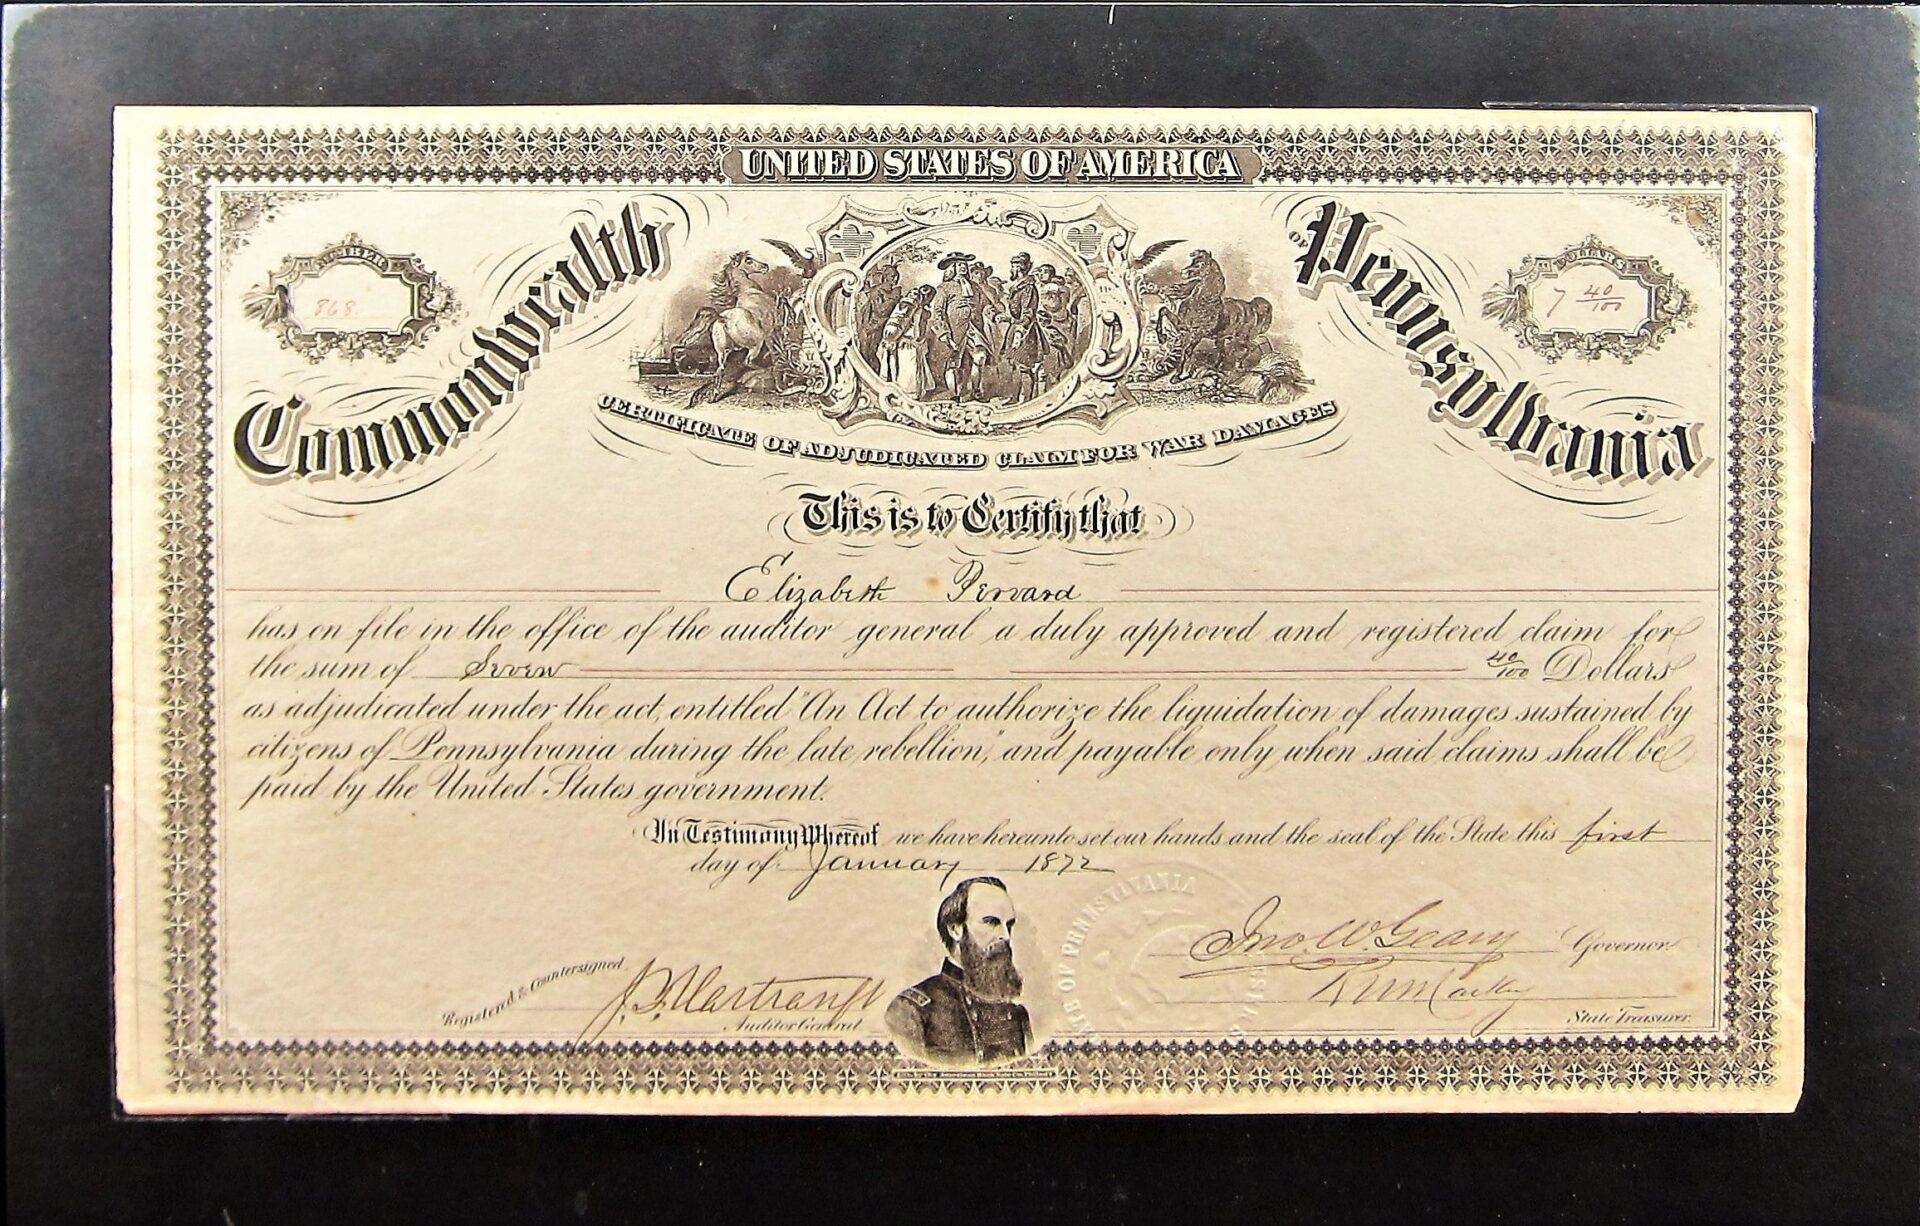 UNITED STATES OF AMERICA
Commonwealth OF Pennsylvania
NUMBER
868
DOLLARS
7 40/100
CERTIFICATE OF ADJUDICATED CLAIM FOR WAR DAMAGES
This is to Certify that
Elizabeth
has on file in the office of the auditor general a duly approved and registered claim for
the sum of Seven 40/100 Dollars
as adjudicated under the act, entitled "An Act to authorize the liquidation of damages sustained by
citizens of Pennsylvania during the late rebellion," and payable only when said claims shall be
paid by the United States government.
In Testimony Whereof we have hereunto set our hands and the seal of the State this first
day of January 1872
Jno. W. Geary Governor.
State Treasurer.
Registered & Countersigned J. F. Hartranft
Auditor General
OF PENNSYLVANIA